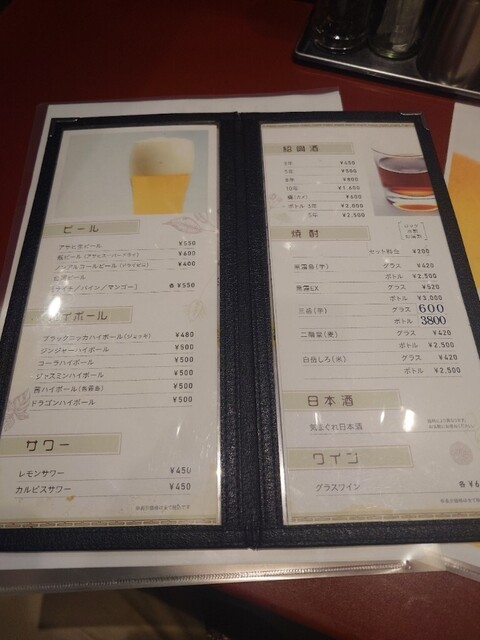 ビール
アサヒ生ビール ¥550
瓶ビール (アサヒスーパードライ) ¥600
ノンアルコールビール (ドライゼロ) ¥400
台湾ビール
(ライチ/パイン/マンゴー) 各¥550
ハイボール
ブラックニッカハイボール(ジョッキ) ¥480
ジンジャーハイボール ¥500
コーラハイボール ¥500
ジャスミンハイボール ¥500
茜ハイボール ¥500
ドラゴンハイボール ¥500
サワー
レモンサワー ¥450
カルピスサワー ¥450
紹興酒
¥450
¥500
8年 ¥800
10年 ¥1,600
¥600
ボトル 3年 ¥2,000
5年 ¥2,500
焼酎
セット料金 ¥200
黒霧島(芋) グラス ¥420
ボトル ¥2,500
黒霧EX グラス ¥520
ボトル ¥3,000
三岳(芋) グラス 600
ボトル 3800
二階堂(麦) グラス ¥420
ボトル ¥2,500
白岳しろ(米) グラス ¥420
ボトル ¥2,500
日本酒
気まぐれ日本酒
ワイン
グラスワイン 各¥6